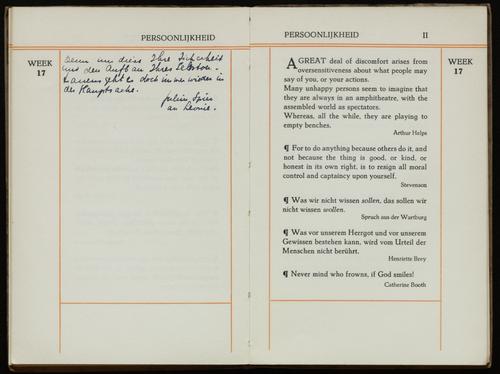 PERSOONLIJKHEID
WEEK
17
Denn um diese Ihre Sicherheit
und den Aufbau Ihres
geht es doch immer wieder in
der Hauptsache.
Julius Spier
an Leonie.
PERSOONLIJKHEID II
WEEK
17
A GREAT deal of discomfort arises from
oversensitiveness about what people may
say of you, or your actions.
Many unhappy persons seem to imagine that
they are always in an amphitheatre, with the
assembled world as spectators.
Whereas, all the while, they are playing to
empty benches.
Arthur Helps
¶ For to do anything because others do it, and
not because the thing is good, or kind, or
honest in its own right, is to resign all moral
control and captaincy upon yourself.
Stevenson
¶ Was wir nicht wissen sollen, das sollen wir
nicht wissen wollen.
Spruch aus der Wartburg
¶ Was vor unserem Herrgot und vor unserem
Gewissen bestehen kann, wird vom Urteil der
Menschen nicht berührt.
Henriette Brey
¶ Never mind who frowns, if God smiles!
Catherine Booth